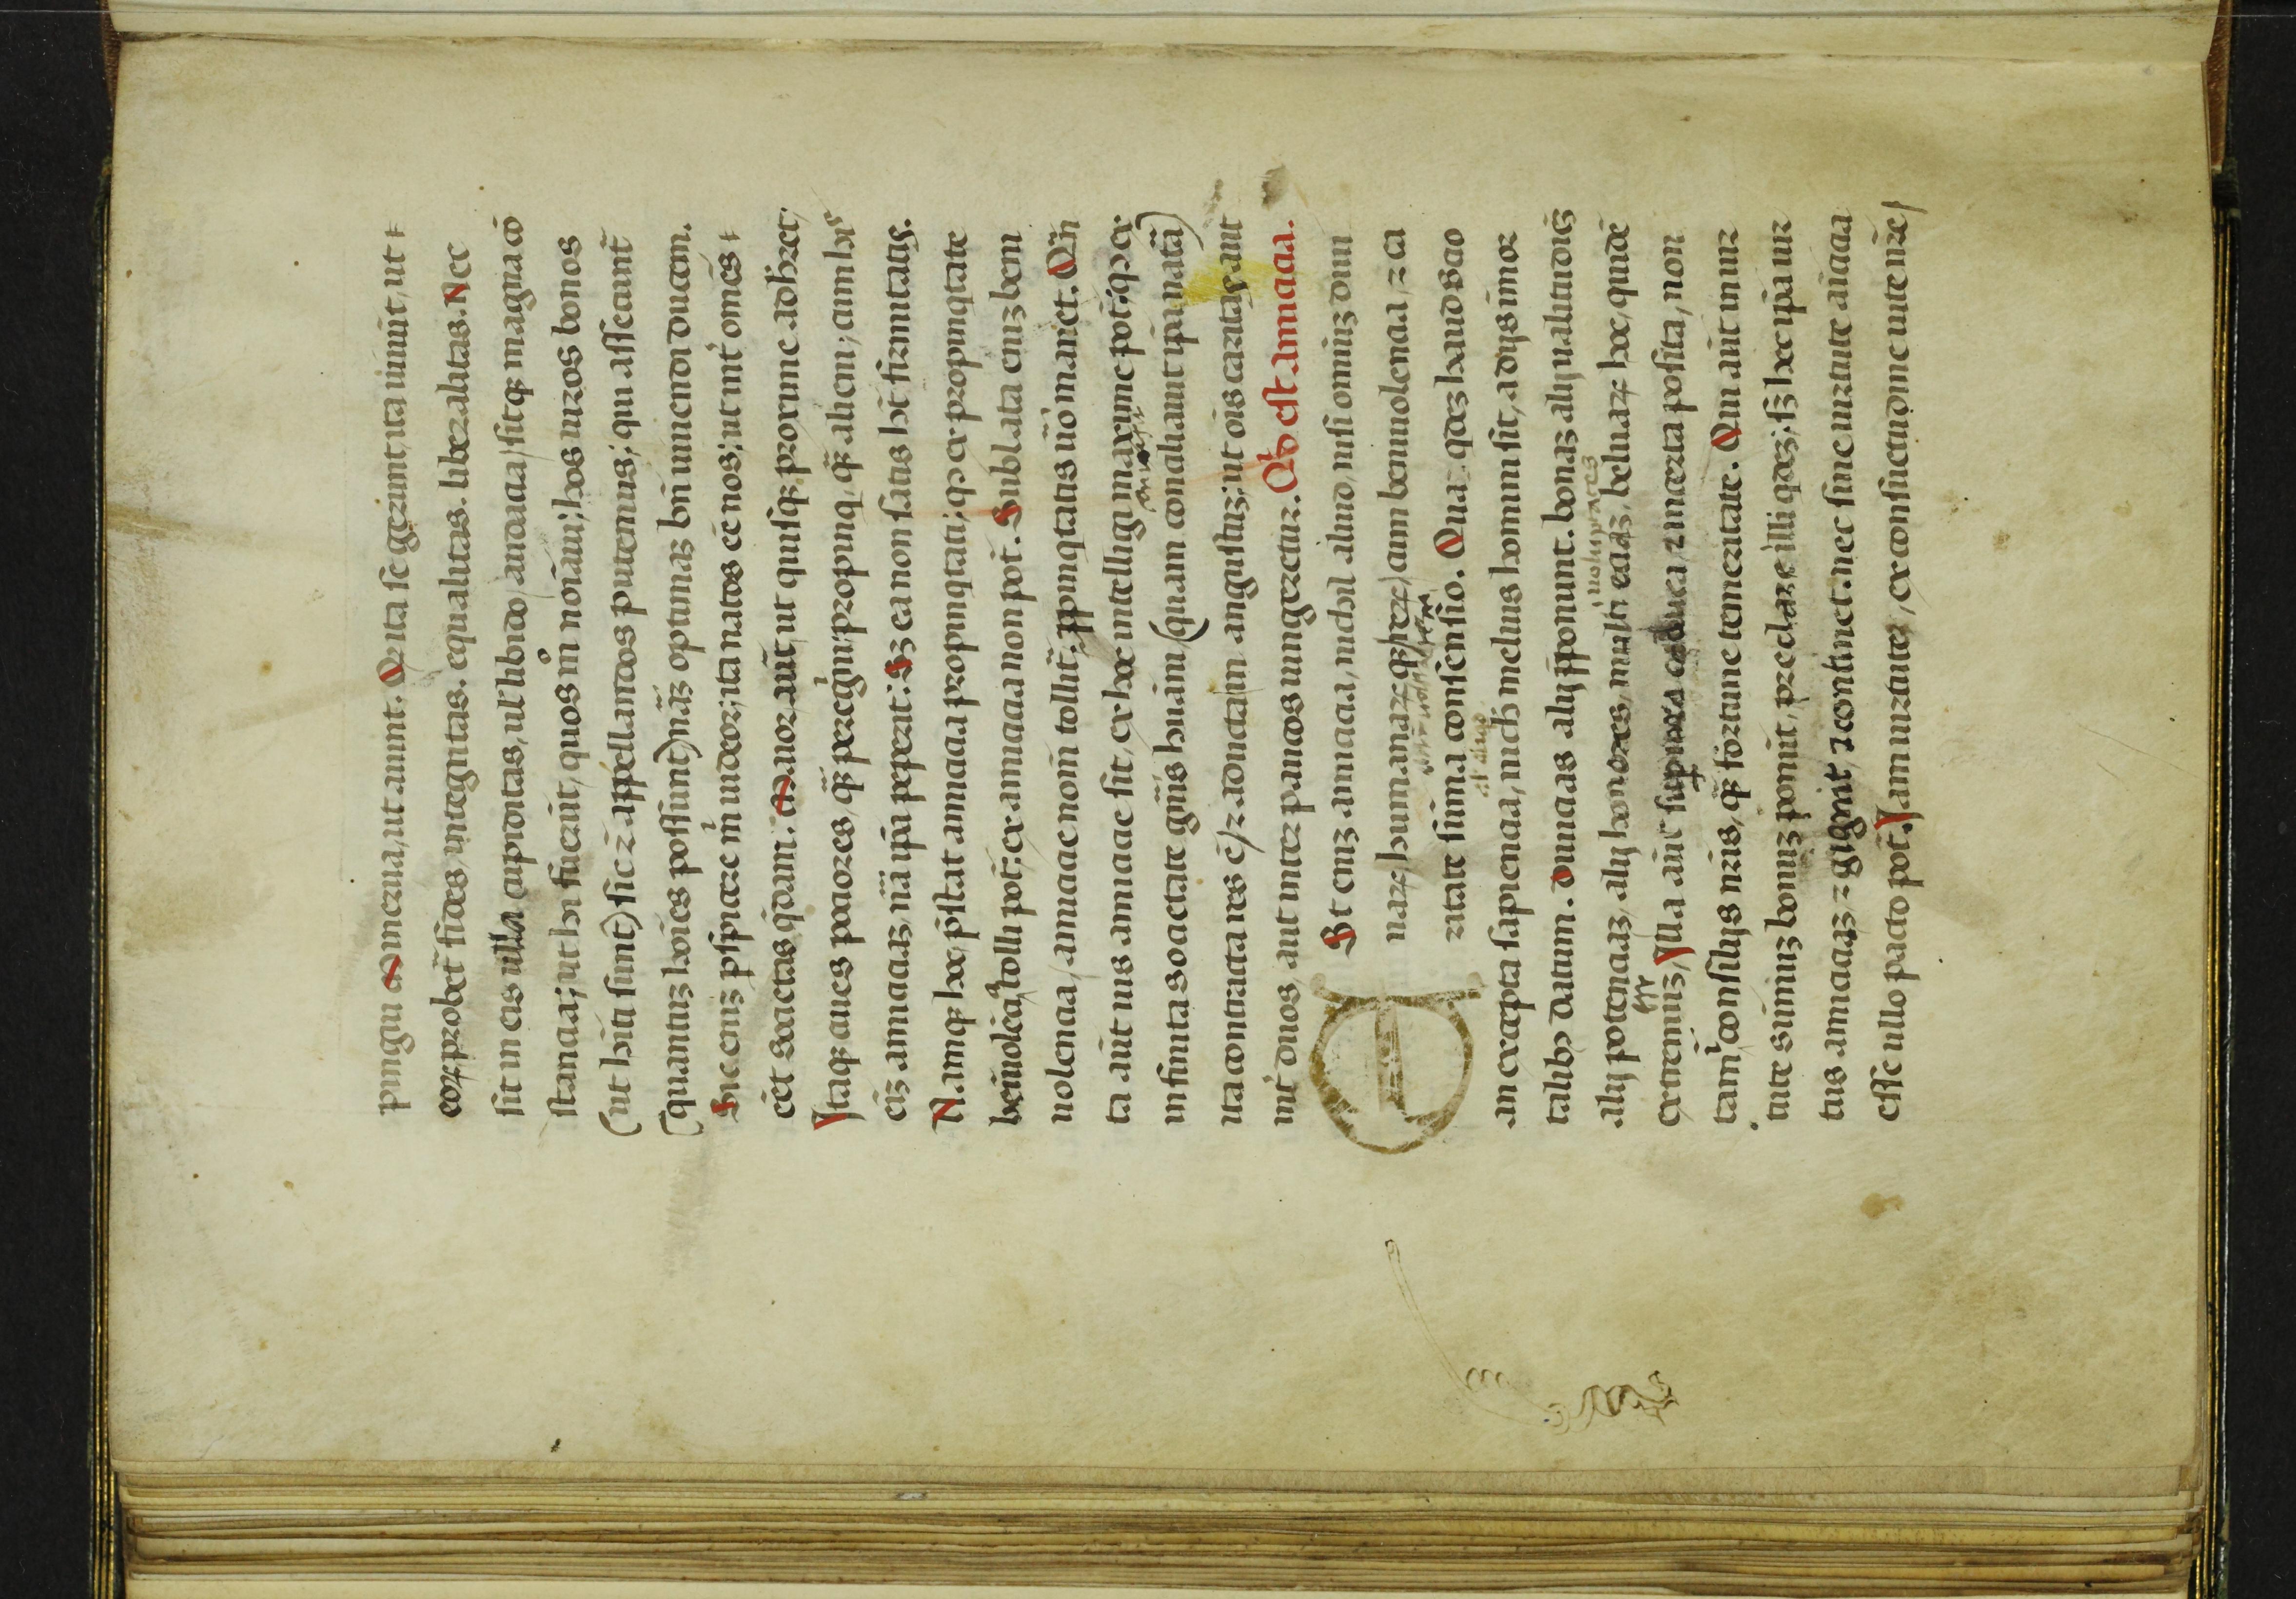 pingui Minerua, ut aiunt. Qui ita se gerunt, ita uiuūt, ut
eoꝝ probet̄ fides, integritas. equalitas. liberalitas. Nec
sit in eis ulla cupiditas, ul' libido / audacia / sitqȝ magna cō
stantia; ut hi fuerūt, quos mō noīaui; hos uiros bonos
(ut hīti sunt) sic ⁊ appellandos putemus; qui assecunt̄
(quantuȝ hoīes possunt) nāȝ optimaȝ bn̄ uiuendi ducem.
Sic eniȝ pspicere mͥ uideor; ita natos eē nos; ut int' omēs
eēt societas q̄dam. Maior aūt, ut quisqȝ proxime adhret;
Itaqȝ ciues pociores, qȝ peregͥni; propinq, qȝ alieni; cum hiis
eīȝ amiciciaȝ nā ipa peperit: Sȝ ea non satis hȝ firmitatis.
Namqȝ hoc p̄stat amicicia propinqtati; qꝫ ex propinqtate
beniuolēcia tolli pōt; ex amicicia non pōt. Sublata eniȝ beni
uolencia / amicicie nomē tollit̄. ꝓpinqtatis uͦ manet. Qn̄
ta aūt uis amicicie sit, ex hoc intelligi maxime pōt; qꝫ ex
infinita societate gn̄is huāni (quam conciliauit ipa natā)
ita contracta res ē / ⁊ adducta in angustuȝ; ut oīs caritas, aut
int' duos aut inter paucos iungeretur. Qͥd est amicicia.
St eniȝ amicicia, nichil aliud, nisi omniuȝ diui
naꝝ / humanaꝝqȝ reꝝ / cum beniuolencia, ⁊ ca
ritate sūma consensio. Qua qdeȝ haud scio
an excepta sapiencia, nich' melius homini sit, a dijs īmor
talibȝ datum. Diuicias alij p̄ponunt. bonaȝ alij ualitudinēȝ
alij potenciaȝ, alij honores, multi eciaȝ uoluptates, beluaꝝ hoc, quidē
extremuȝ / Illa aūt supiora caduca, ⁊ incerta posita, non
tam ī consilijs nr̄is, qȝ fortune temeritate. Qui aūt in uir
tute sūmuȝ bonuȝ ponūt, preclare illi qdeȝ; sȝ hec ipa uir
tus amiciciaȝ ⁊ gignit, ⁊ continet. nec sine uirtute aīcicia
esse ullo pacto pōt. Iam uirtutes, ex consuetudine uite nr̄e /